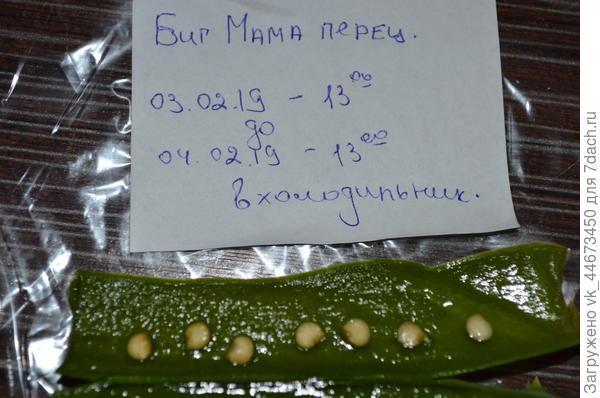 Биг Мама перец.
03.02.19 - 13 00
до
04.02.19 - 13 00
в холодильник.
Загружено vk_44673450 для 7dach.ru